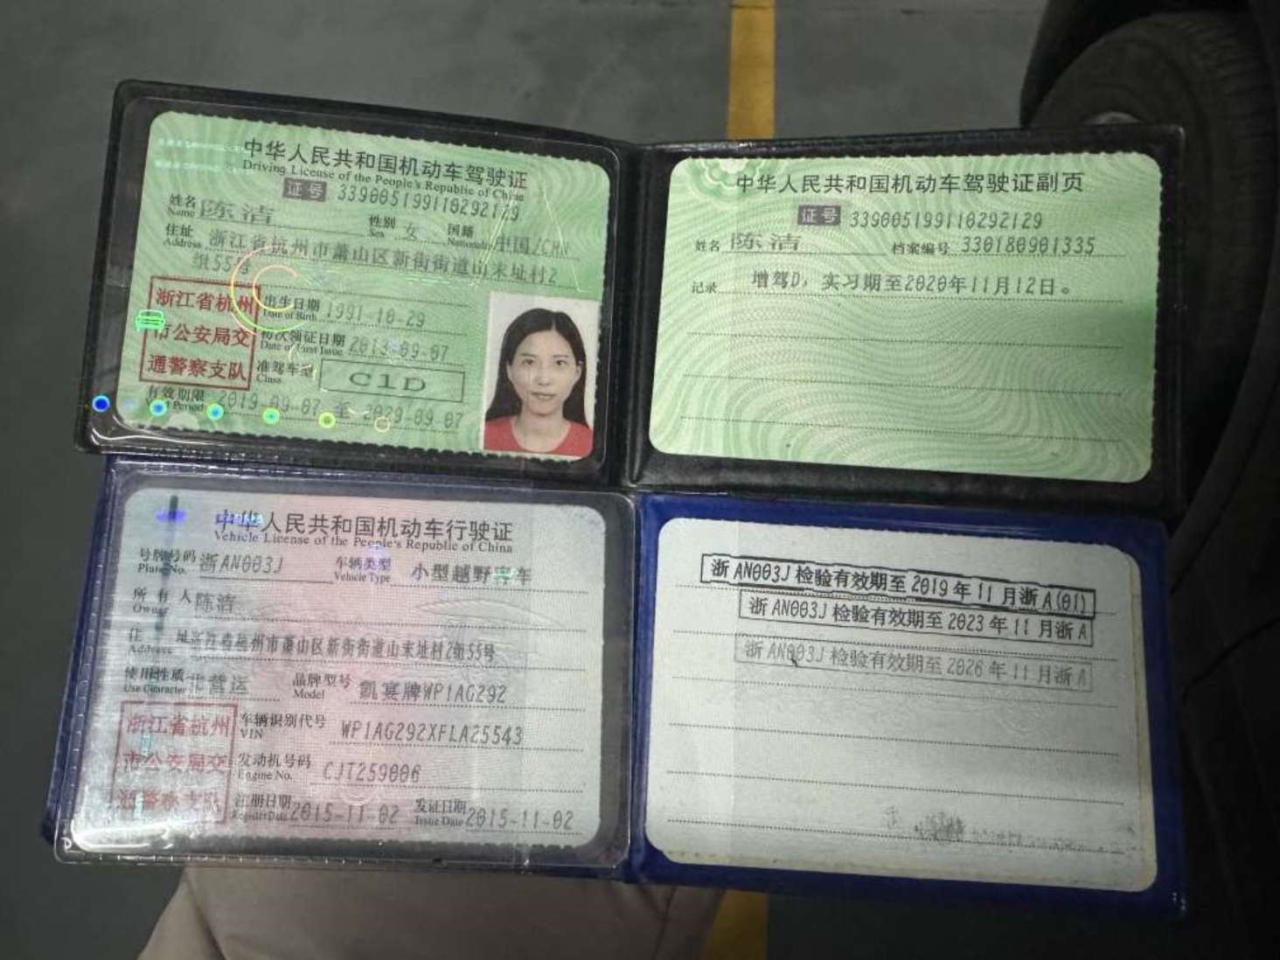 中华人民共和国机动车驾驶证
Driving License of the People's Republic of China
证号 339005199110292129
姓名 Name 陈洁 性别 Sex 女 国籍 Nationality 中国/CHN
住址 Address 浙江省杭州市萧山区新街街道山末址村2
组55号
浙江省杭州
市公安局交
通警察支队
出生日期 Date of Birth 1991-10-29
初次领证日期 Date of First Issue 2013-09-07
准驾车型 Class C1D
有效期限 Valid Period 2019-09-07 至 2029-09-07
中华人民共和国机动车驾驶证副页
证号 339005199110292129
姓名 陈洁 档案编号 330180901335
记录 增驾D，实习期至2020年11月12日。
中华人民共和国机动车行驶证
Vehicle License of the People's Republic of China
号牌号码 Plate No. 浙AN003J 车辆类型 Vehicle Type 小型越野客车
所有人 Owner 陈洁
住址 Address 浙江省杭州市萧山区新街街道山末址村2组55号
使用性质 Use Character 非营运 品牌型号 Model 凯宴牌WP1AG292
浙江省杭州
市公安局交
通警察支队
车辆识别代号 VIN WP1AG292XFLA25543
发动机号码 Engine No. CJT259006
注册日期 Register Date 2015-11-02 发证日期 Issue Date 2015-11-02
浙AN003J检验有效期至2019年11月浙A(01)
浙AN003J检验有效期至2023年11月浙A
浙AN003J检验有效期至2026年11月浙A